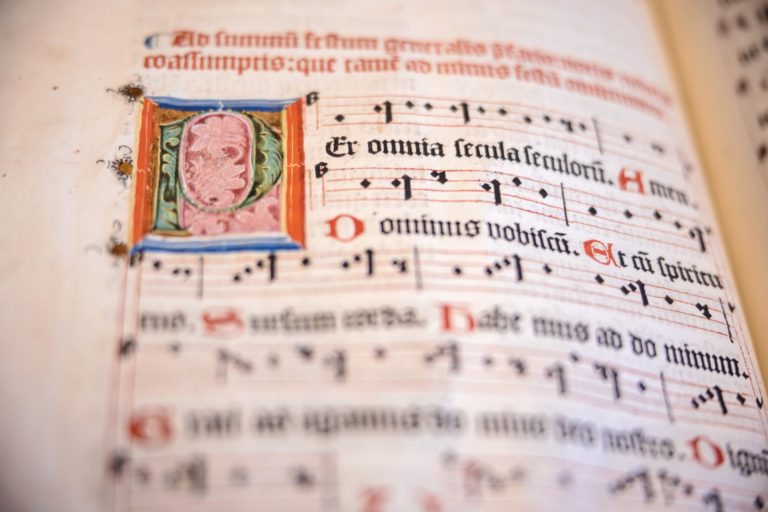 Ad summū festum generalis
coassumptis: que tamē ad minus festū
PEr omnia secula seculorū. Amen.
Dominus vobiscū. Et cū spiritu
tuo. Sursum corda. Habe mus ad do minum.
Grati as agamus do mino deo nostro.